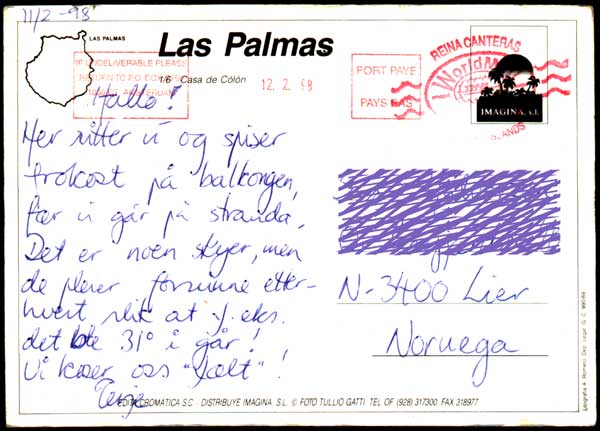 11/2 -98
LAS PALMAS
Las Palmas
1/6 Casa de Colón
IF UNDELIVERABLE PLEASE
RETURN TO P.O. BOX
12. 2. 98
PORT PAYE
PAYS BAS
REINA CANTERAS
WorldM
IMAGINA, S.L.
ISLANDS
Hallo!
Her sitter vi og spiser
frokost på balkongen,
før vi går på stranda.
Det er noen skyer, men
de pleier forsvinne etter-
hvert slik at f. eks.
det ble 31° i går!
Vi koser oss "Jælt"!
Terje
N-3400 Lier
Noruega
EDITA CROMATICA S.C. - DISTRIBUYE IMAGINA, S.L. © FOTO TULLIO GATTI TEL. OF (928) 317300 FAX 318977